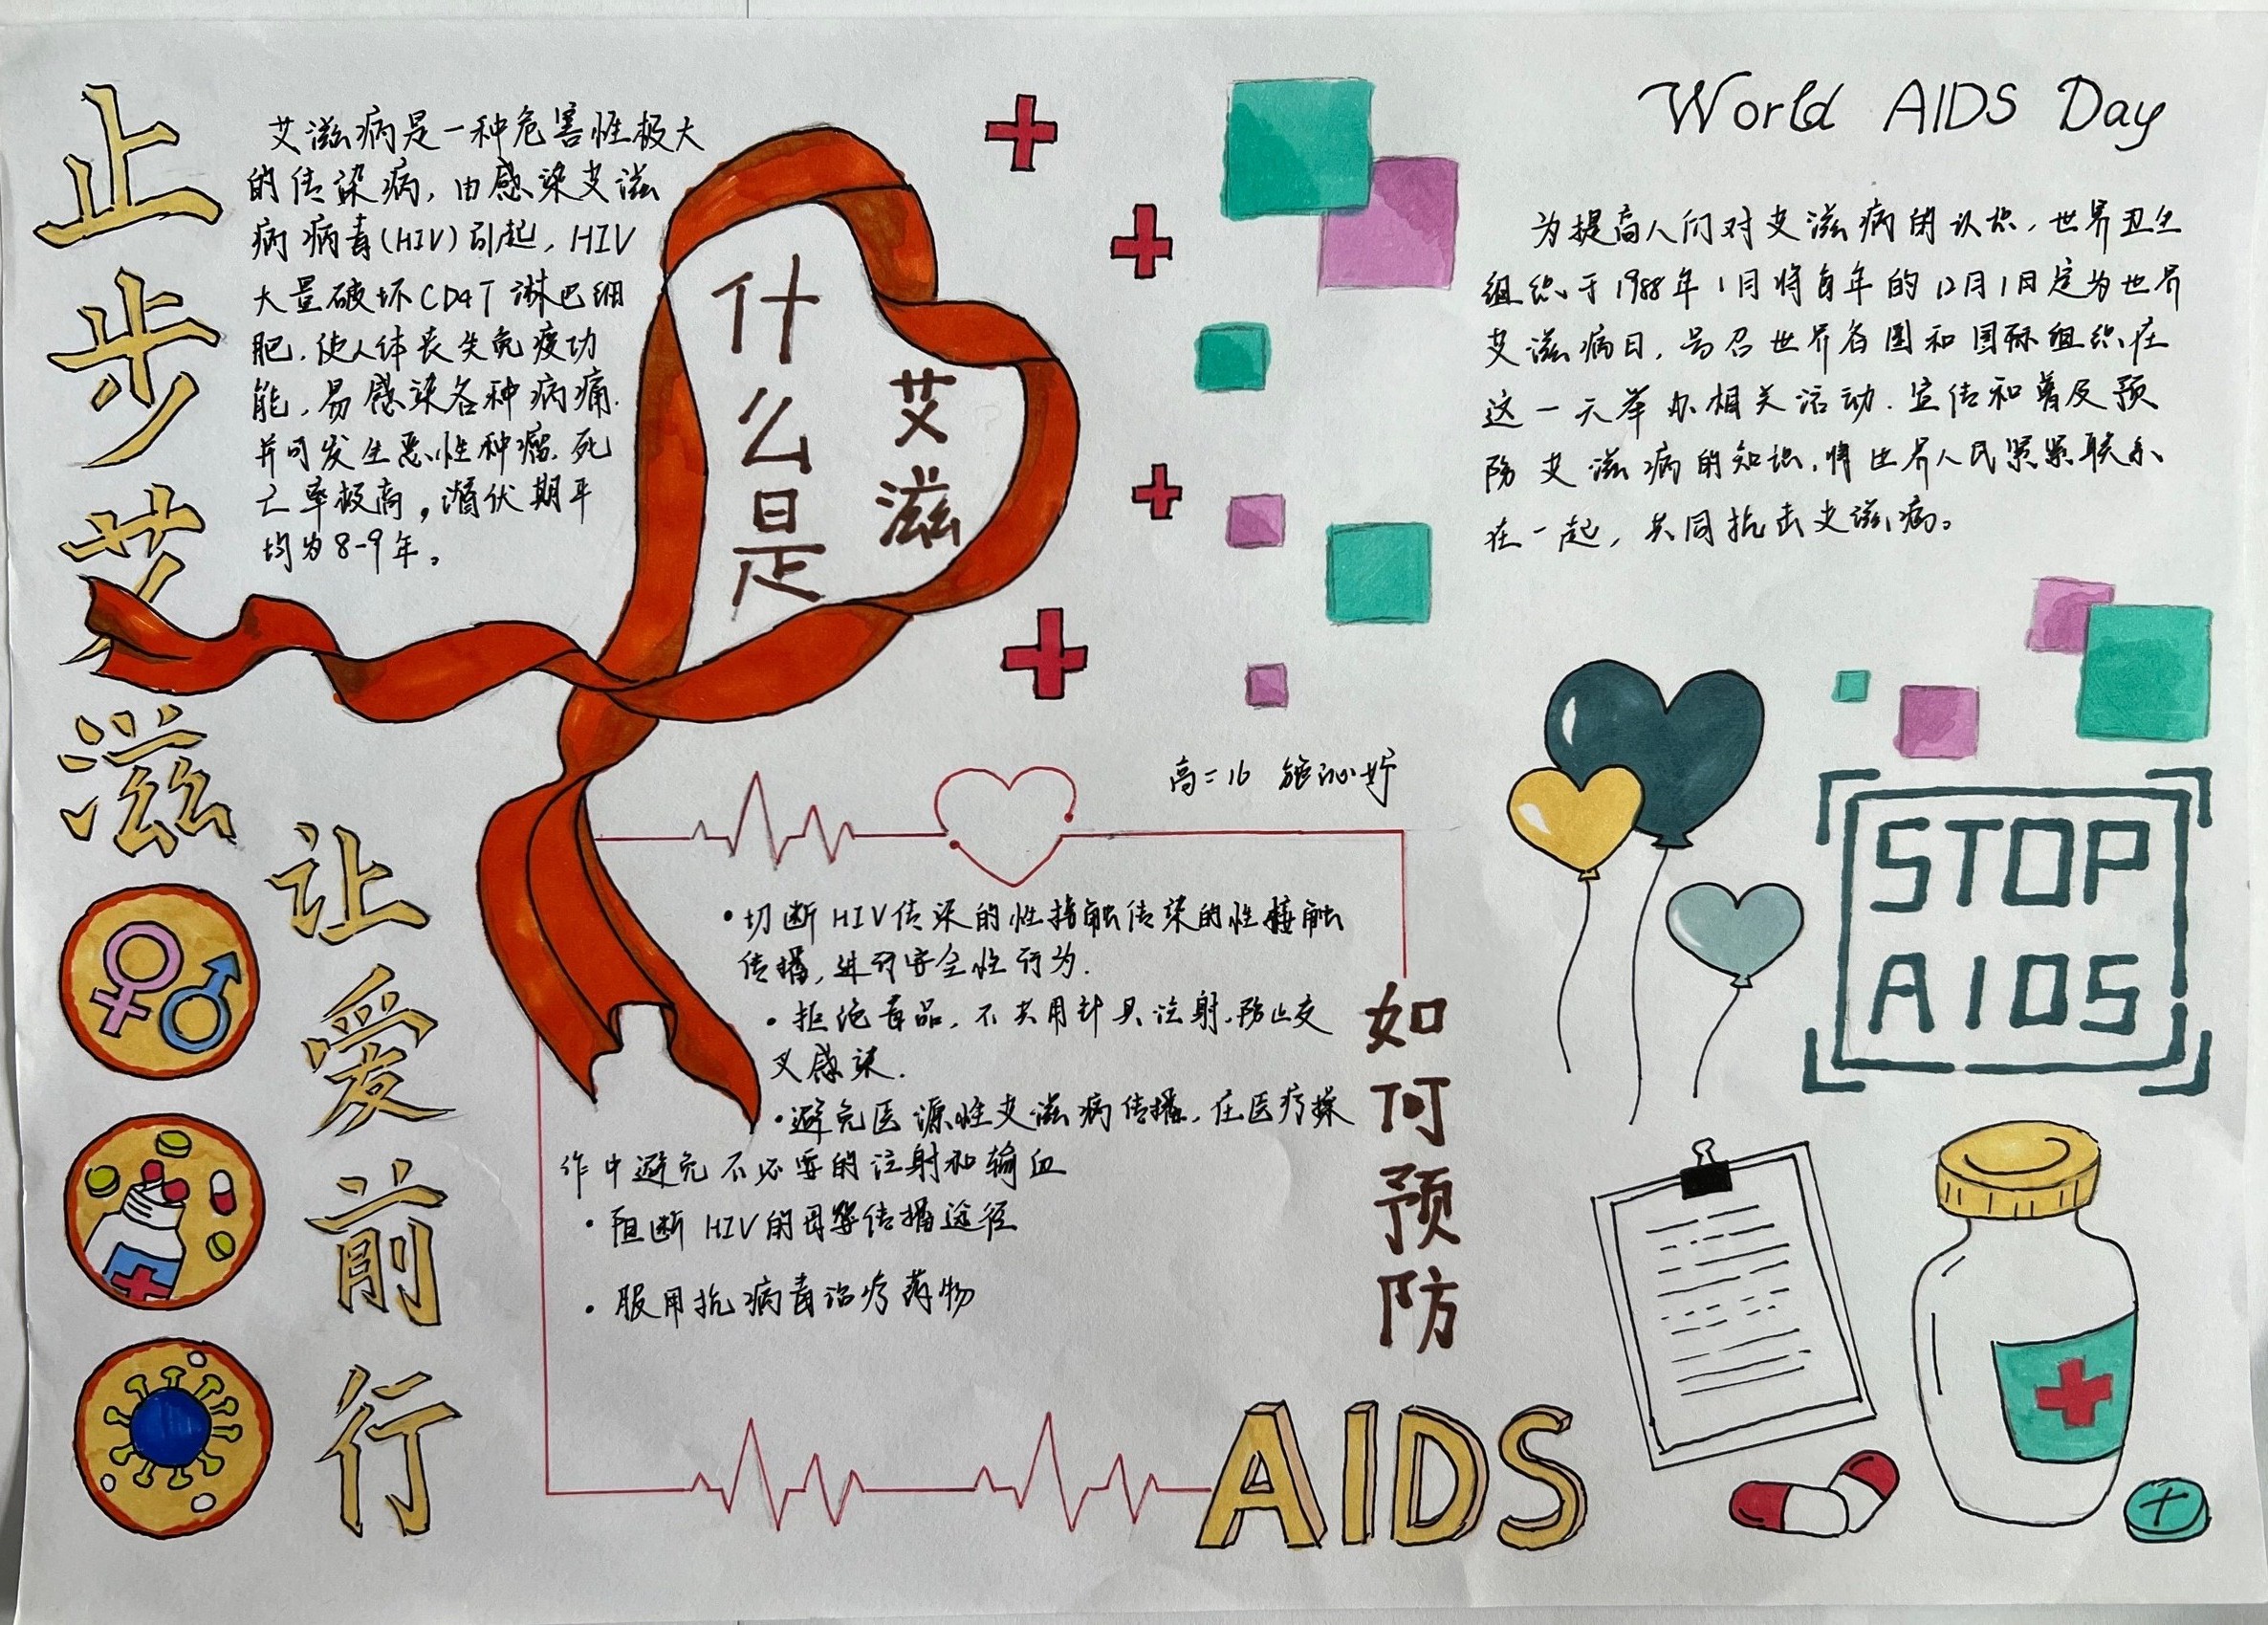 止步艾滋
让爱前行
艾滋病是一种危害性极大
的传染病，由感染艾滋
病病毒(HIV)引起，HIV
大量破坏CD4T淋巴细
胞，使人体丧失免疫功
能，易感染各种病痛.
并可发生恶性种瘤.死
亡率极高，潜伏期平
均为8-9年。
什么是
艾滋
World AIDS Day
为提高人们对艾滋病的认识，世界卫生
组织于1988年1月将每年的12月1日定为世界
艾滋病日，号召世界各国和国际组织在
这一天举办相关活动.宣传和普及预
防艾滋病的知识，将世界人民紧紧联系
在一起，共同抗击艾滋病。
高二16
STOP
AIDS
·切断HIV传染的性接触传染的性接触
传播，进行安全性行为.
·拒绝毒品，不共用针具注射.防止交
叉感染.
·避免医源性艾滋病传播，在医疗操
作中避免不必要的注射和输血
·阻断HIV的母婴传播途径
·服用抗病毒治疗药物
如何预防
AIDS